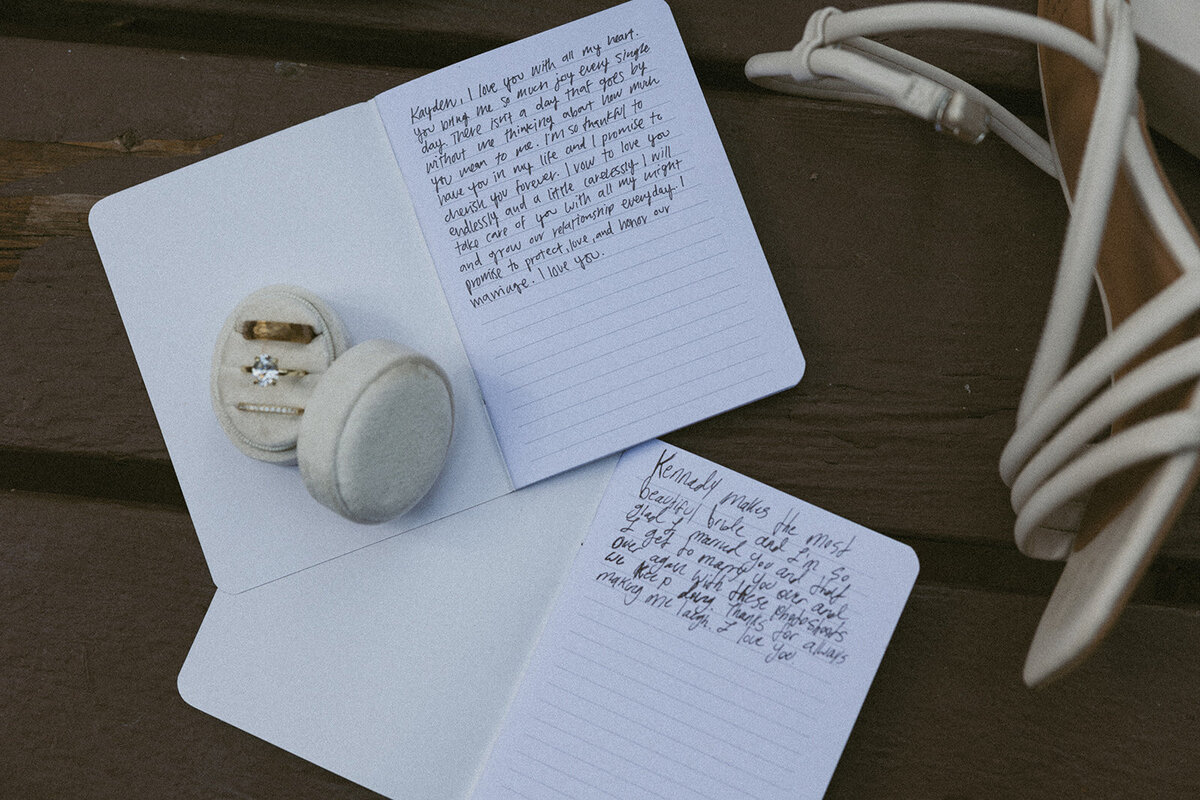 Kayden, I love you with all my heart.
you bring me so much joy every single
day. There isn't a day that goes by
without me thinking about how much
you mean to me. I'm so thankful to
have you in my life and I promise to
cherish you forever. I vow to love you
endlessly and a little carelessly. I will
take care of you with all my might
and grow our relationship everyday. I
promise to protect, love, and honor our
marriage. I love you.
Kennady makes the most
beautiful bride and I'm so
glad I married you and that
I get to marry you over and
over again with these photoshoots
we keep doing. Thanks for always
making me laugh. I love you